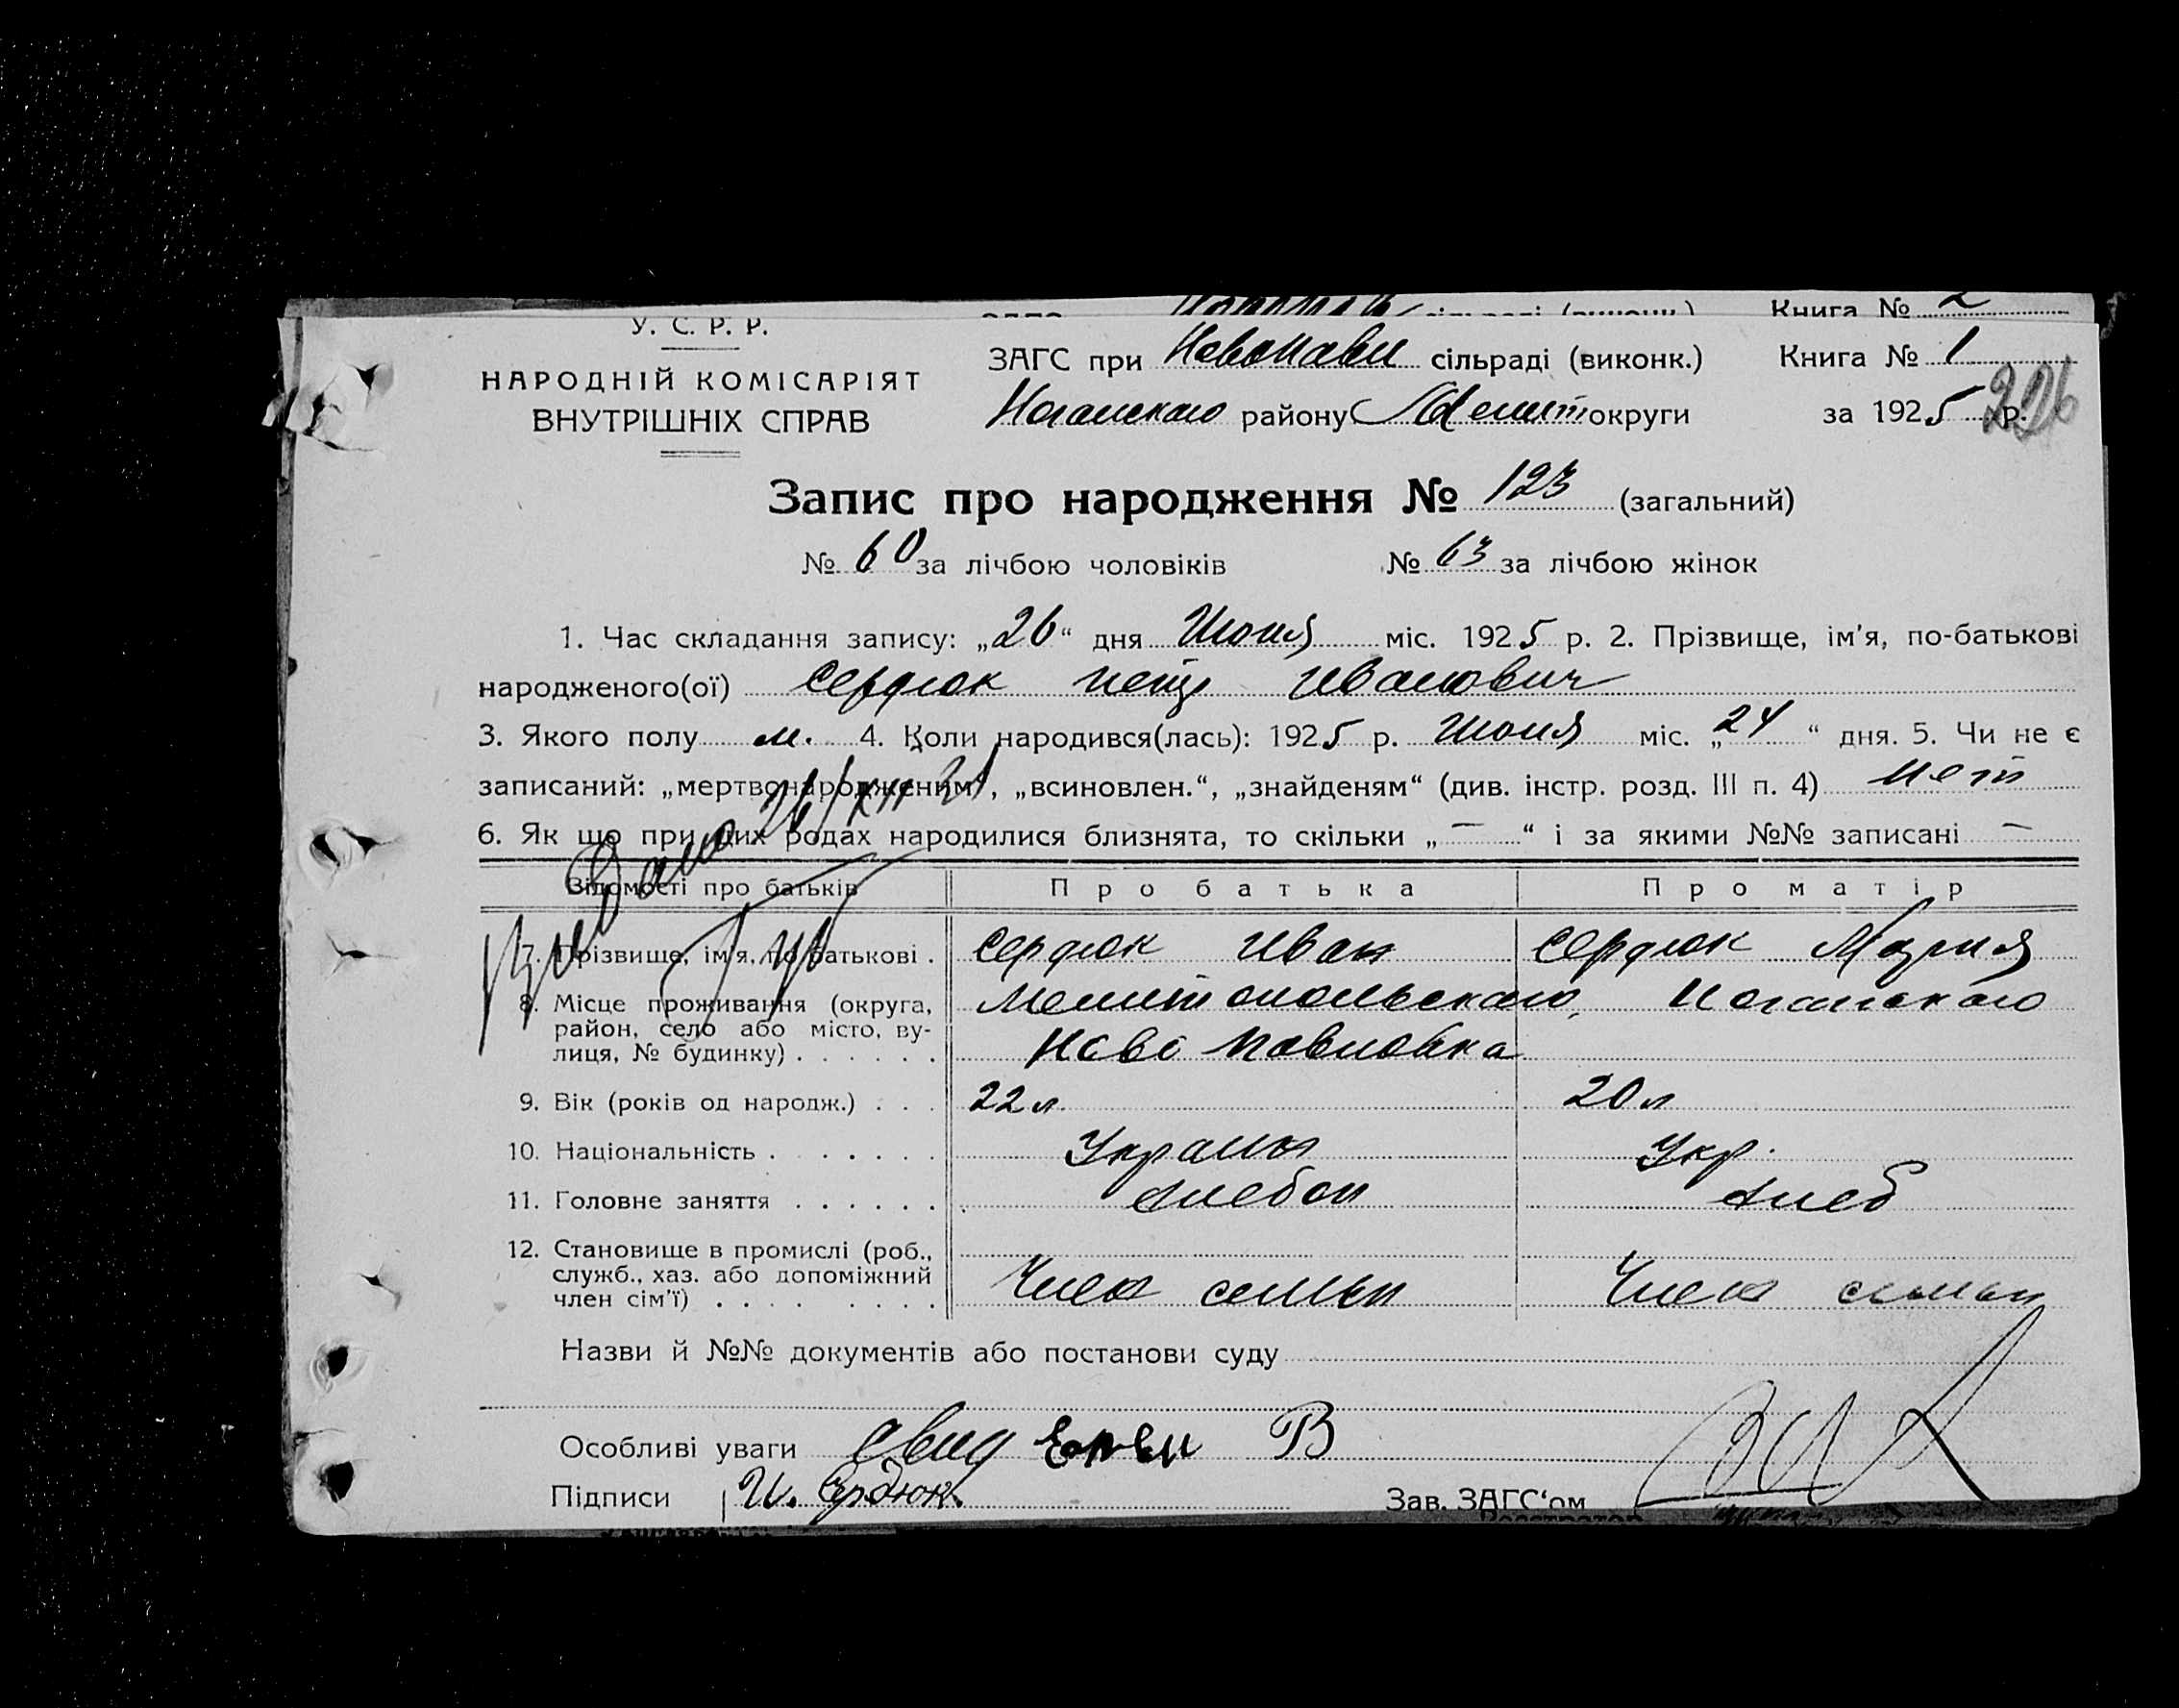 Книга № 2
У. С. Р. Р.
НАРОДНІЙ КОМІСАРІЯТ
ВНУТРІШНІХ СПРАВ
ЗАГС при Новопавл сільраді (виконк.) Книга № 1
Ногайского району Мелит округи за 1925 р.
226
Запис про народження № 123 (загальний)
№ 60 за лічбою чоловіків № 63 за лічбою жінок
1. Час складання запису: „26“ дня Июня міс. 1925 р. 2. Прізвище, ім'я, по-батькові
народженого(ої) Сердюк Петр Иванович
3. Якого полу м. 4. Коли народився(лась): 1925 р. Июня міс. „24“ дня. 5. Чи не є
записаний: „мертвонародженим“, „всиновлен.“, „знайденям“ (див. інстр. розд. III п. 4) Нет
6. Як що при цих родах народилися близнята, то скільки „—“ і за якими №№ записані —
Відомості про батьків Про батька Про матір
7. Прізвище, ім'я, по батькові . Сердюк Иван Сердюк Мария
8. Місце проживання (округа, Мелитопольского, Ногайского
район, село або місто, ву-
лиця, № будинку) . . . . . . Ново Павловка
9. Вік (років од народж.) . . . 22 л. 20 л
10. Національність . . . . . . . Украин Укр.
11. Головне заняття . . . . . . хлебоп хлеб
12. Становище в промислі (роб.,
служб., хаз. або допоміжний
член сім'ї) . . . . . . . . Член семьи Член семьи
Назви й №№ документів або постанови суду
Особливі уваги В
Підписи И. Сердюк. Зав. ЗАГС‘ом